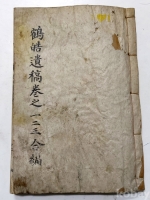 鶴皓遺稿卷之一二三合編